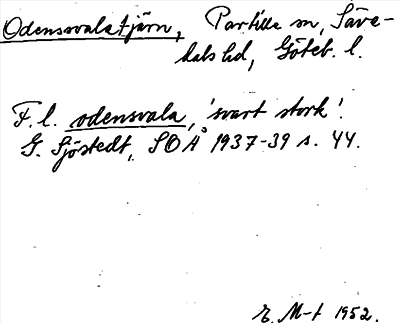 Odenssvalatjärn, Partille sn, Säve-
dals hd, Göteb. l.
F. l. odensvala, 'svart stork'.
G. Sjöstedt, SOÅ 1937-39 s. 44.
E. M-t 1952.